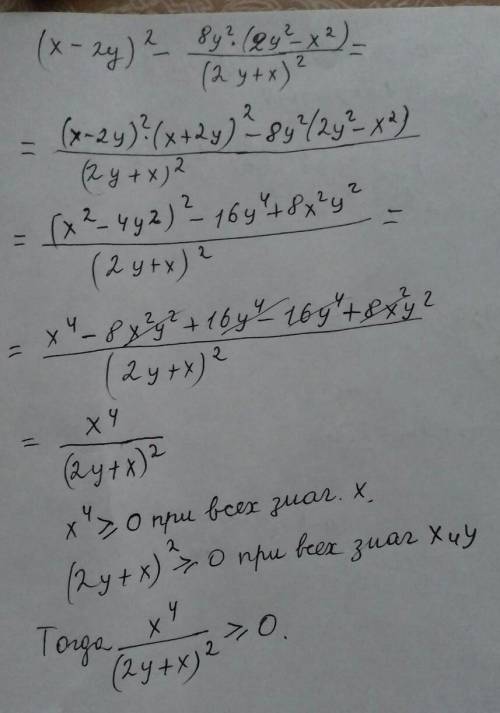 (x - 2y)² - 8y²·(2y² - x²) / (2y+x)² =
= (x-2y)²·(x+2y)² - 8y²(2y² - x²) / (2y+x)²
= (x² - 4y2)² - 16y⁴ + 8x²y² / (2y+x)² =
= x⁴ - 8x²y² + 16y⁴ - 16y⁴ + 8x²y² / (2y+x)²
= x⁴ / (2y+x)²
x⁴ ≥ 0 при всех знаг. x.
(2y+x)² ≥ 0 при всех знаг x и y
Тогда x⁴ / (2y+x)² ≥ 0.